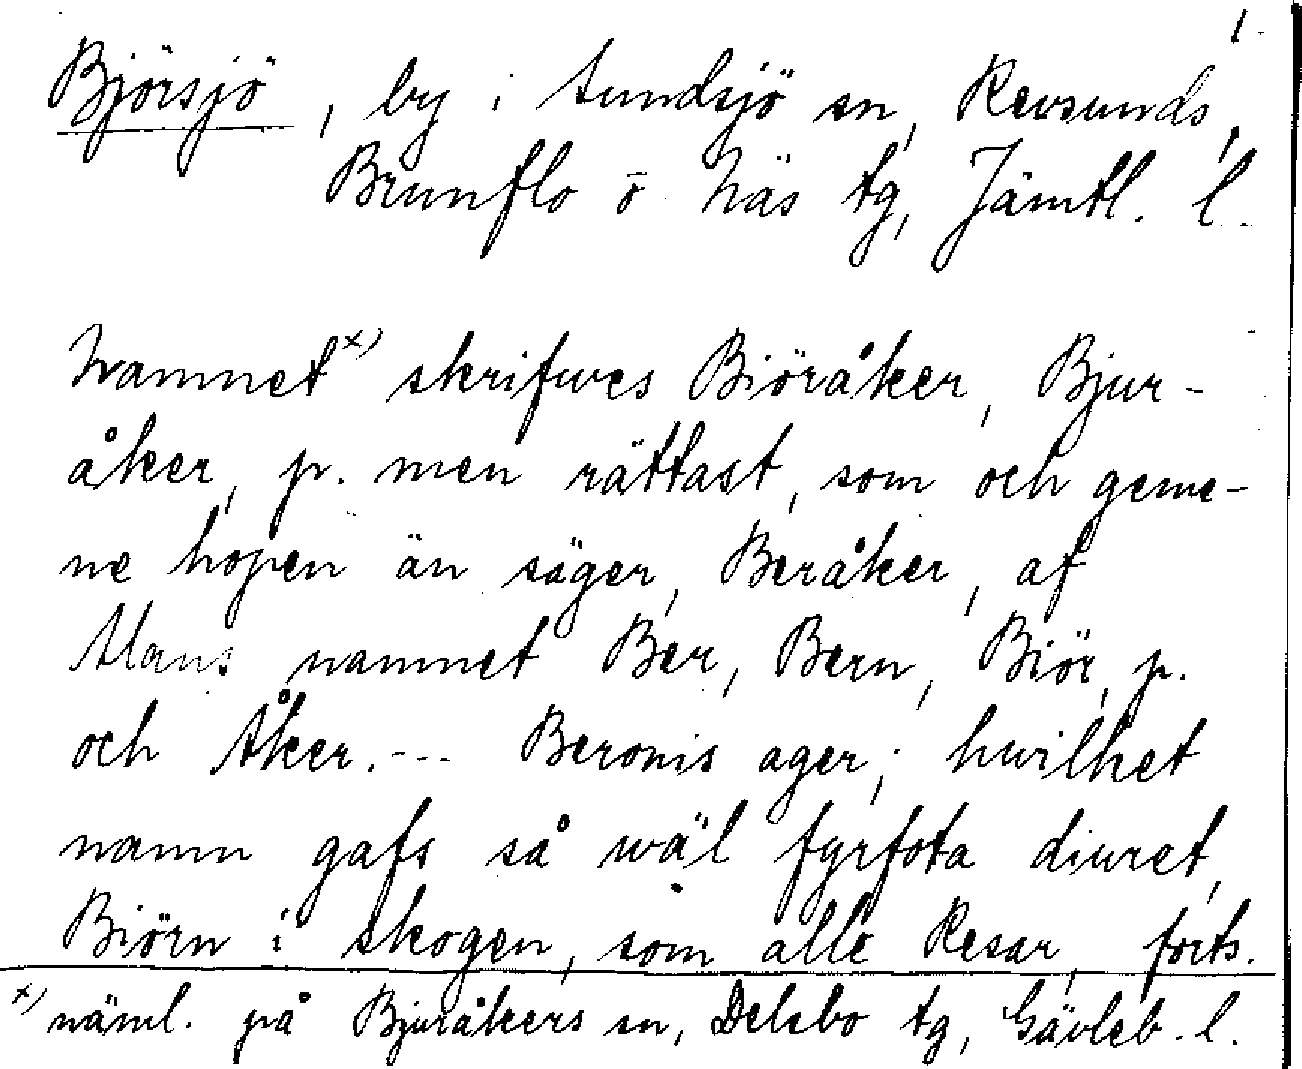 1.
Björsjö, by i Sundsjö sn, Revsunds,
Brunflo o Näs tg, Jämtl. l.
Namnet x) skrifwes Biöråker, Bjur-
åker, p. men rättast, som och geme-
ne hopen än säger, Beråker, af
Mans namnet Ber, Bern, Biör, p.
och Åker. --- Beronis ager; hwilket
namn gafs så wäl fyrfota diuret,
Biörn i skogen, som alle Resar, forts.
x) näml. på Bjuråkers sn, Delsbo tg, Gävleb. l.